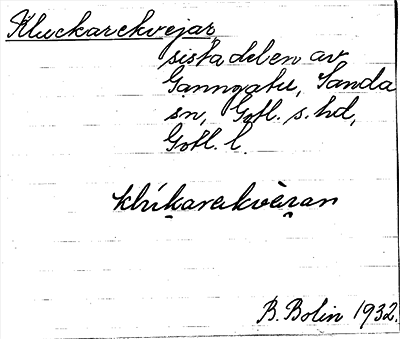 Kluckarekvejar,
sista delen av
Ganngatu, Sanda
sn, Gotl. s. hd,
Gotl. l.
klúkarekvèi̯ran
B. Bolin 1932.